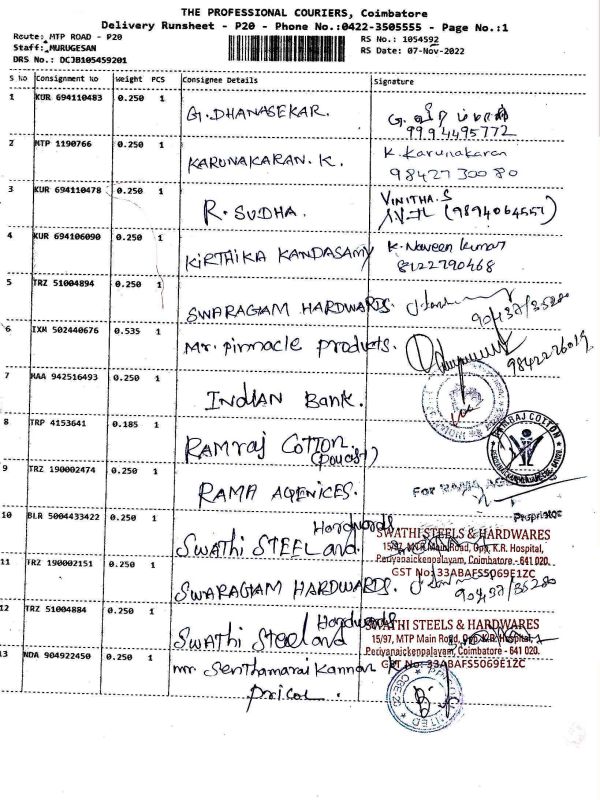 THE PROFESSIONAL COURIERS, Coimbatore
Delivery Runsheet - P20 - Phone No.:0422-3505555 - Page No.:1
Route: MTP ROAD - P20
RS No.: 1054592
Staff: MURUGESAN
RS Date: 07-Nov-2022
DRS No.: DCJB105459201
S No Consignment No Weight PCS Consignee Details Signature
1 KUR 694110483 0.250 1 G. DHANASEKAR. G.
9994495772
2 MTP 1190766 0.250 1 KARUNAKARAN. K. K. Karunakaran
98427 300 80
3 KUR 694110478 0.250 1 R. SUDHA. VINITHA. S
(9894064557)
4 KUR 694106090 0.250 1 KIRTHIKA KANDASAMY K. Naveen Kumar
8122790468
5 TRZ 51004894 0.250 1 SWARAGAM HARDWARDS.
90437/35280
6 IXM 502440676 0.535 1 Mr. Pinnacle products.
9842276019
7 MAA 942516493 0.250 1 INDIAN Bank.
8 TRP 4153641 0.185 1 RAMRAJ COTTON
RAMRAJ COTTON
9 TRZ 190002474 0.250 1 RAMA AGENICES. For RAMA
Proprietor
10 BLR 5004433422 0.250 1 SWATHI STEEL and Hardwards
SWATHI STEELS & HARDWARES
15/97, MTP Main Road, Opp. K.R. Hospital,
Periyanaickenpalayam, Coimbatore - 641 020.
GST No: 33ABAFS5069E1ZC
11 TRZ 190002151 0.250 1 SWARAGAM HARDWARDS.
90437/35280
12 TRZ 51004884 0.250 1 Swathi Steel and Hardwards
SWATHI STEELS & HARDWARES
15/97, MTP Main Road, Opp. K.R. Hospital,
Periyanaickenpalayam, Coimbatore - 641 020.
GST No: 33ABAFS5069E1ZC
13 NDA 904922450 0.250 1 mr Senthamarai Kannan K
Pricol.